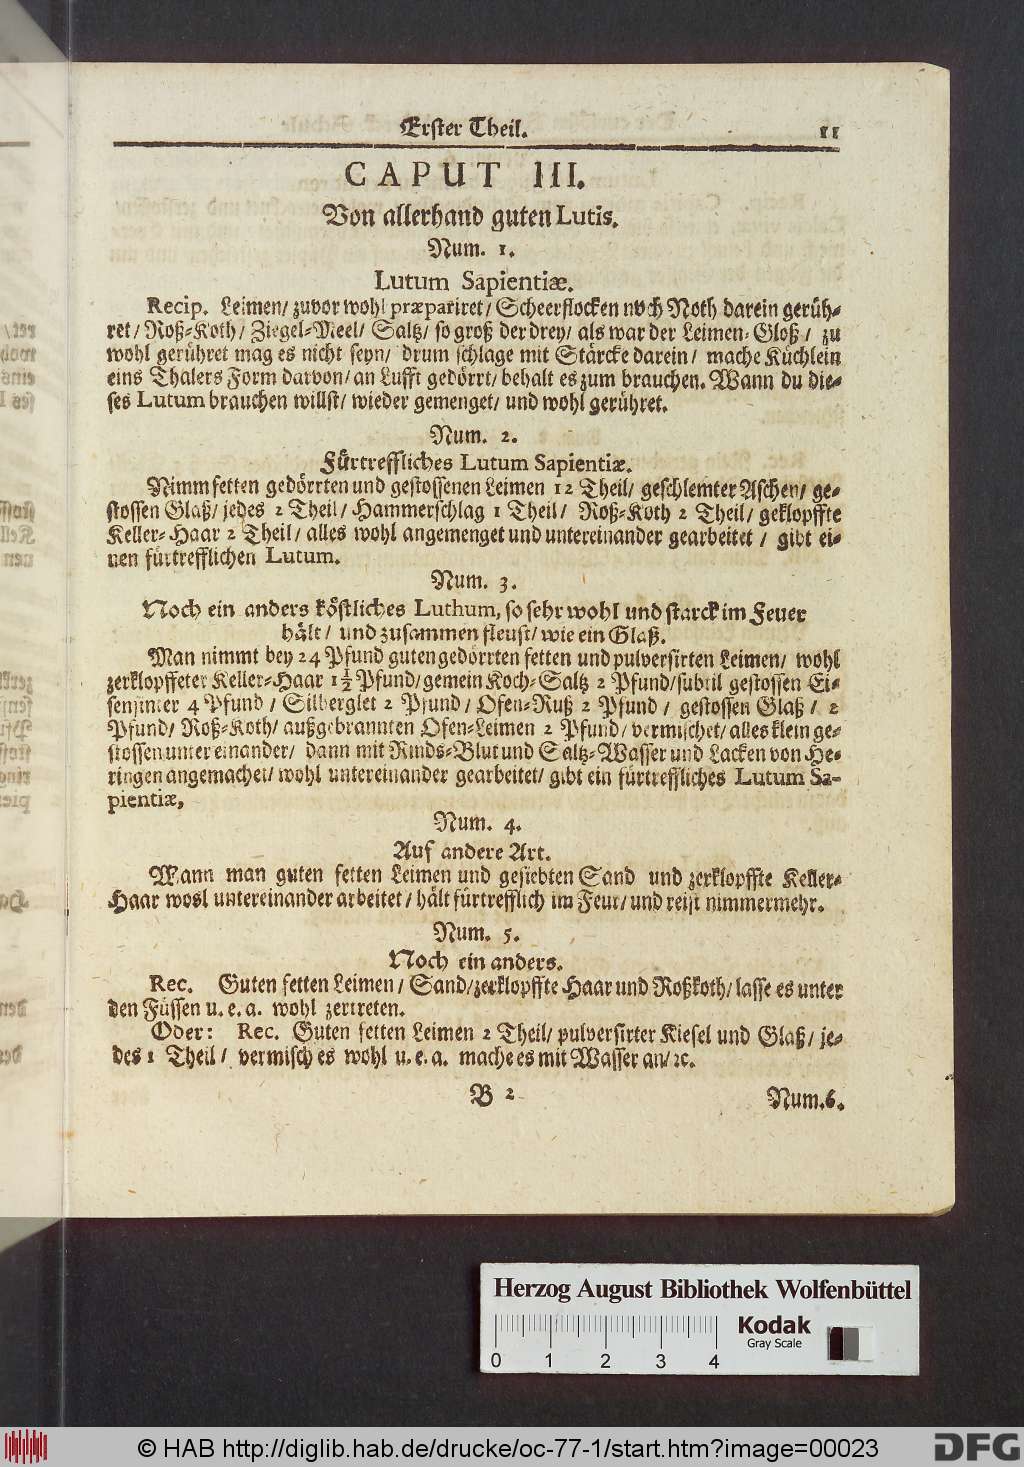 Erster Theil. 11
CAPUT III.
Von allerhand guten Lutis.
Num. 1.
Lutum Sapientiæ.
Recip. Leimen/ zuvor wohl præpariret/ Scheerflocken noch Noth darein gerüh-
ret/ Roß-Koth/ Ziegel-Meel/ Saltz/ so groß der drey/ als war der Leimen-Gloß/ zu
wohl gerühret mag es nicht seyn/ drum schlage mit Stärcke darein/ mache Küchlein
eins Thalers Form darvon/ an Lufft gedörrt/ behalt es zum brauchen. Wann du die-
ses Lutum brauchen willst/ wieder gemenget/ und wohl gerühret.
Num. 2.
Fürtreffliches Lutum Sapientiæ.
Nimm fetten gedörrten und gestossenen Leimen 12 Theil/ geschlemter Aschen/ ge-
stossen Glaß/ jedes 2 Theil/ Hammerschlag 1 Theil/ Roß-Koth 2 Theil/ geklopffte
Keller-Haar 2 Theil/ alles wohl angemenget und untereinander gearbeitet/ gibt ei-
nen fürtrefflichen Lutum.
Num. 3.
Noch ein anders köstliches Luthum, so sehr wohl und starck im Feuer
hält/ und zusammen fleust/ wie ein Glaß.
Man nimmt bey 24 Pfund guten gedörrten fetten und pulversirten Leimen/ wohl
zerklopffeter Keller-Haar 1½ Pfund/ gemein Koch-Saltz 2 Pfund/ subtil gestossen Ei-
sensinter 4 Pfund/ Silberglet 2 Pfund/ Ofen-Ruß 2 Pfund/ gestossen Glaß/ 2
Pfund/ Roß-Koth/ außgebrannten Ofen-Leimen 2 Pfund/ vermischet/ alles klein ge-
stossen unter einander/ dann mit Rinds-Blut und Saltz-Wasser und Lacken von He-
ringen angemachet/ wohl untereinander gearbeitet/ gibt ein fürtreffliches Lutum Sa-
pientiæ,
Num. 4.
Auf andere Art.
Wann man guten fetten Leimen und gesiebten Sand und zerklopffte Keller-
Haar wohl untereinander arbeitet/ hält fürtrefflich im Feur/ und reist nimmermehr.
Num. 5.
Noch ein anders.
Rec. Guten fetten Leimen/ Sand/ zerklopffte Haar und Roßkoth/ lasse es unter
den Füssen u. e. a. wohl zertreten.
Oder: Rec. Guten fetten Leimen 2 Theil/ pulversirter Kiesel und Glaß/ je-
des 1 Theil/ vermisch es wohl u. e. a. mache es mit Wasser an/ ꝛc.
B 2 Num. 6.
Herzog August Bibliothek Wolfenbüttel
Kodak
Gray Scale
0 1 2 3 4
© HAB http://diglib.hab.de/drucke/oc-77-1/start.htm?image=00023
DFG